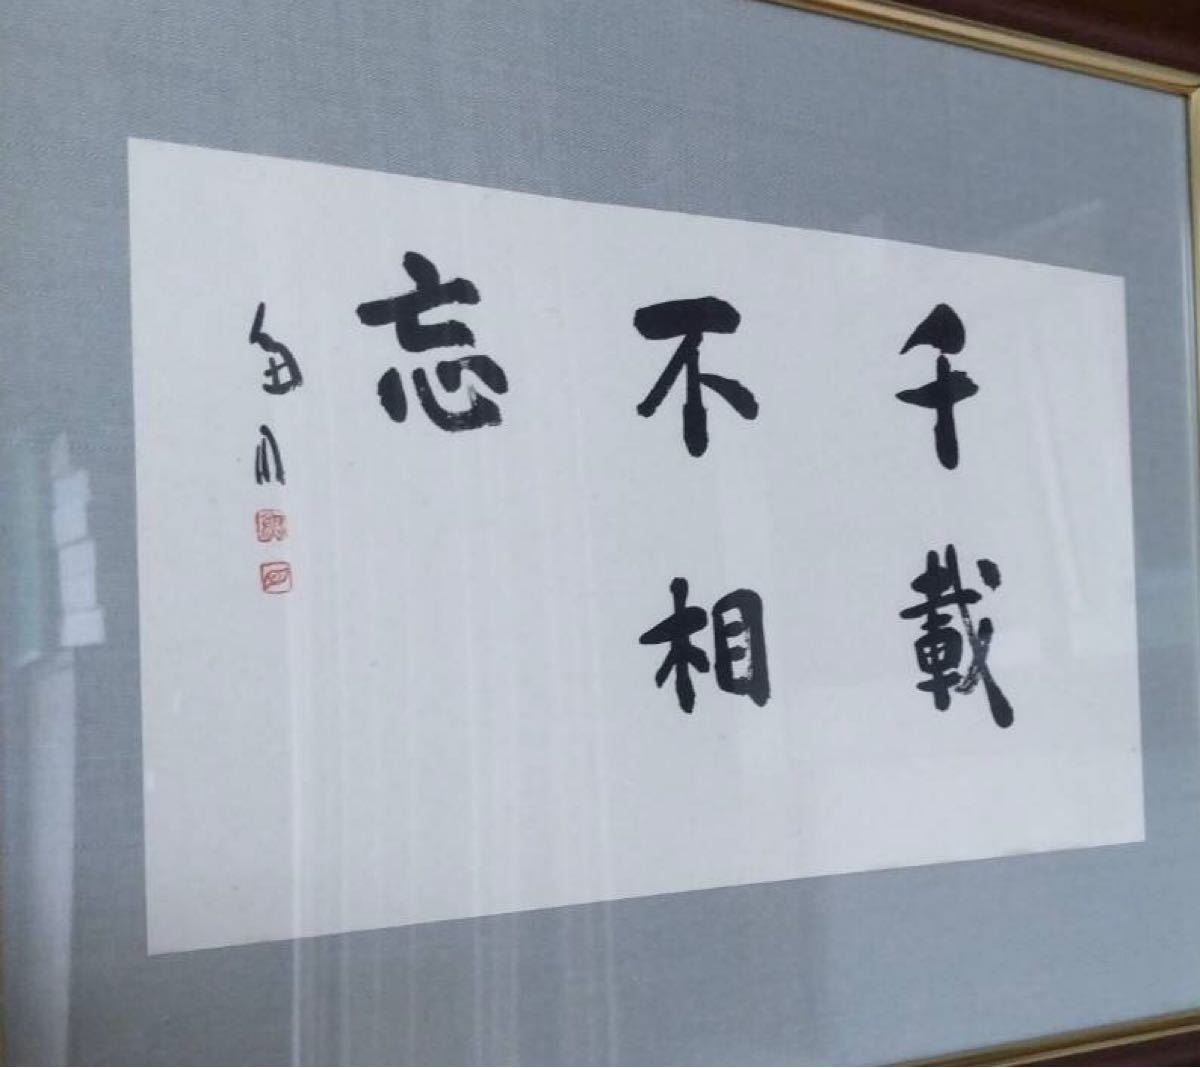 千載
不相
忘